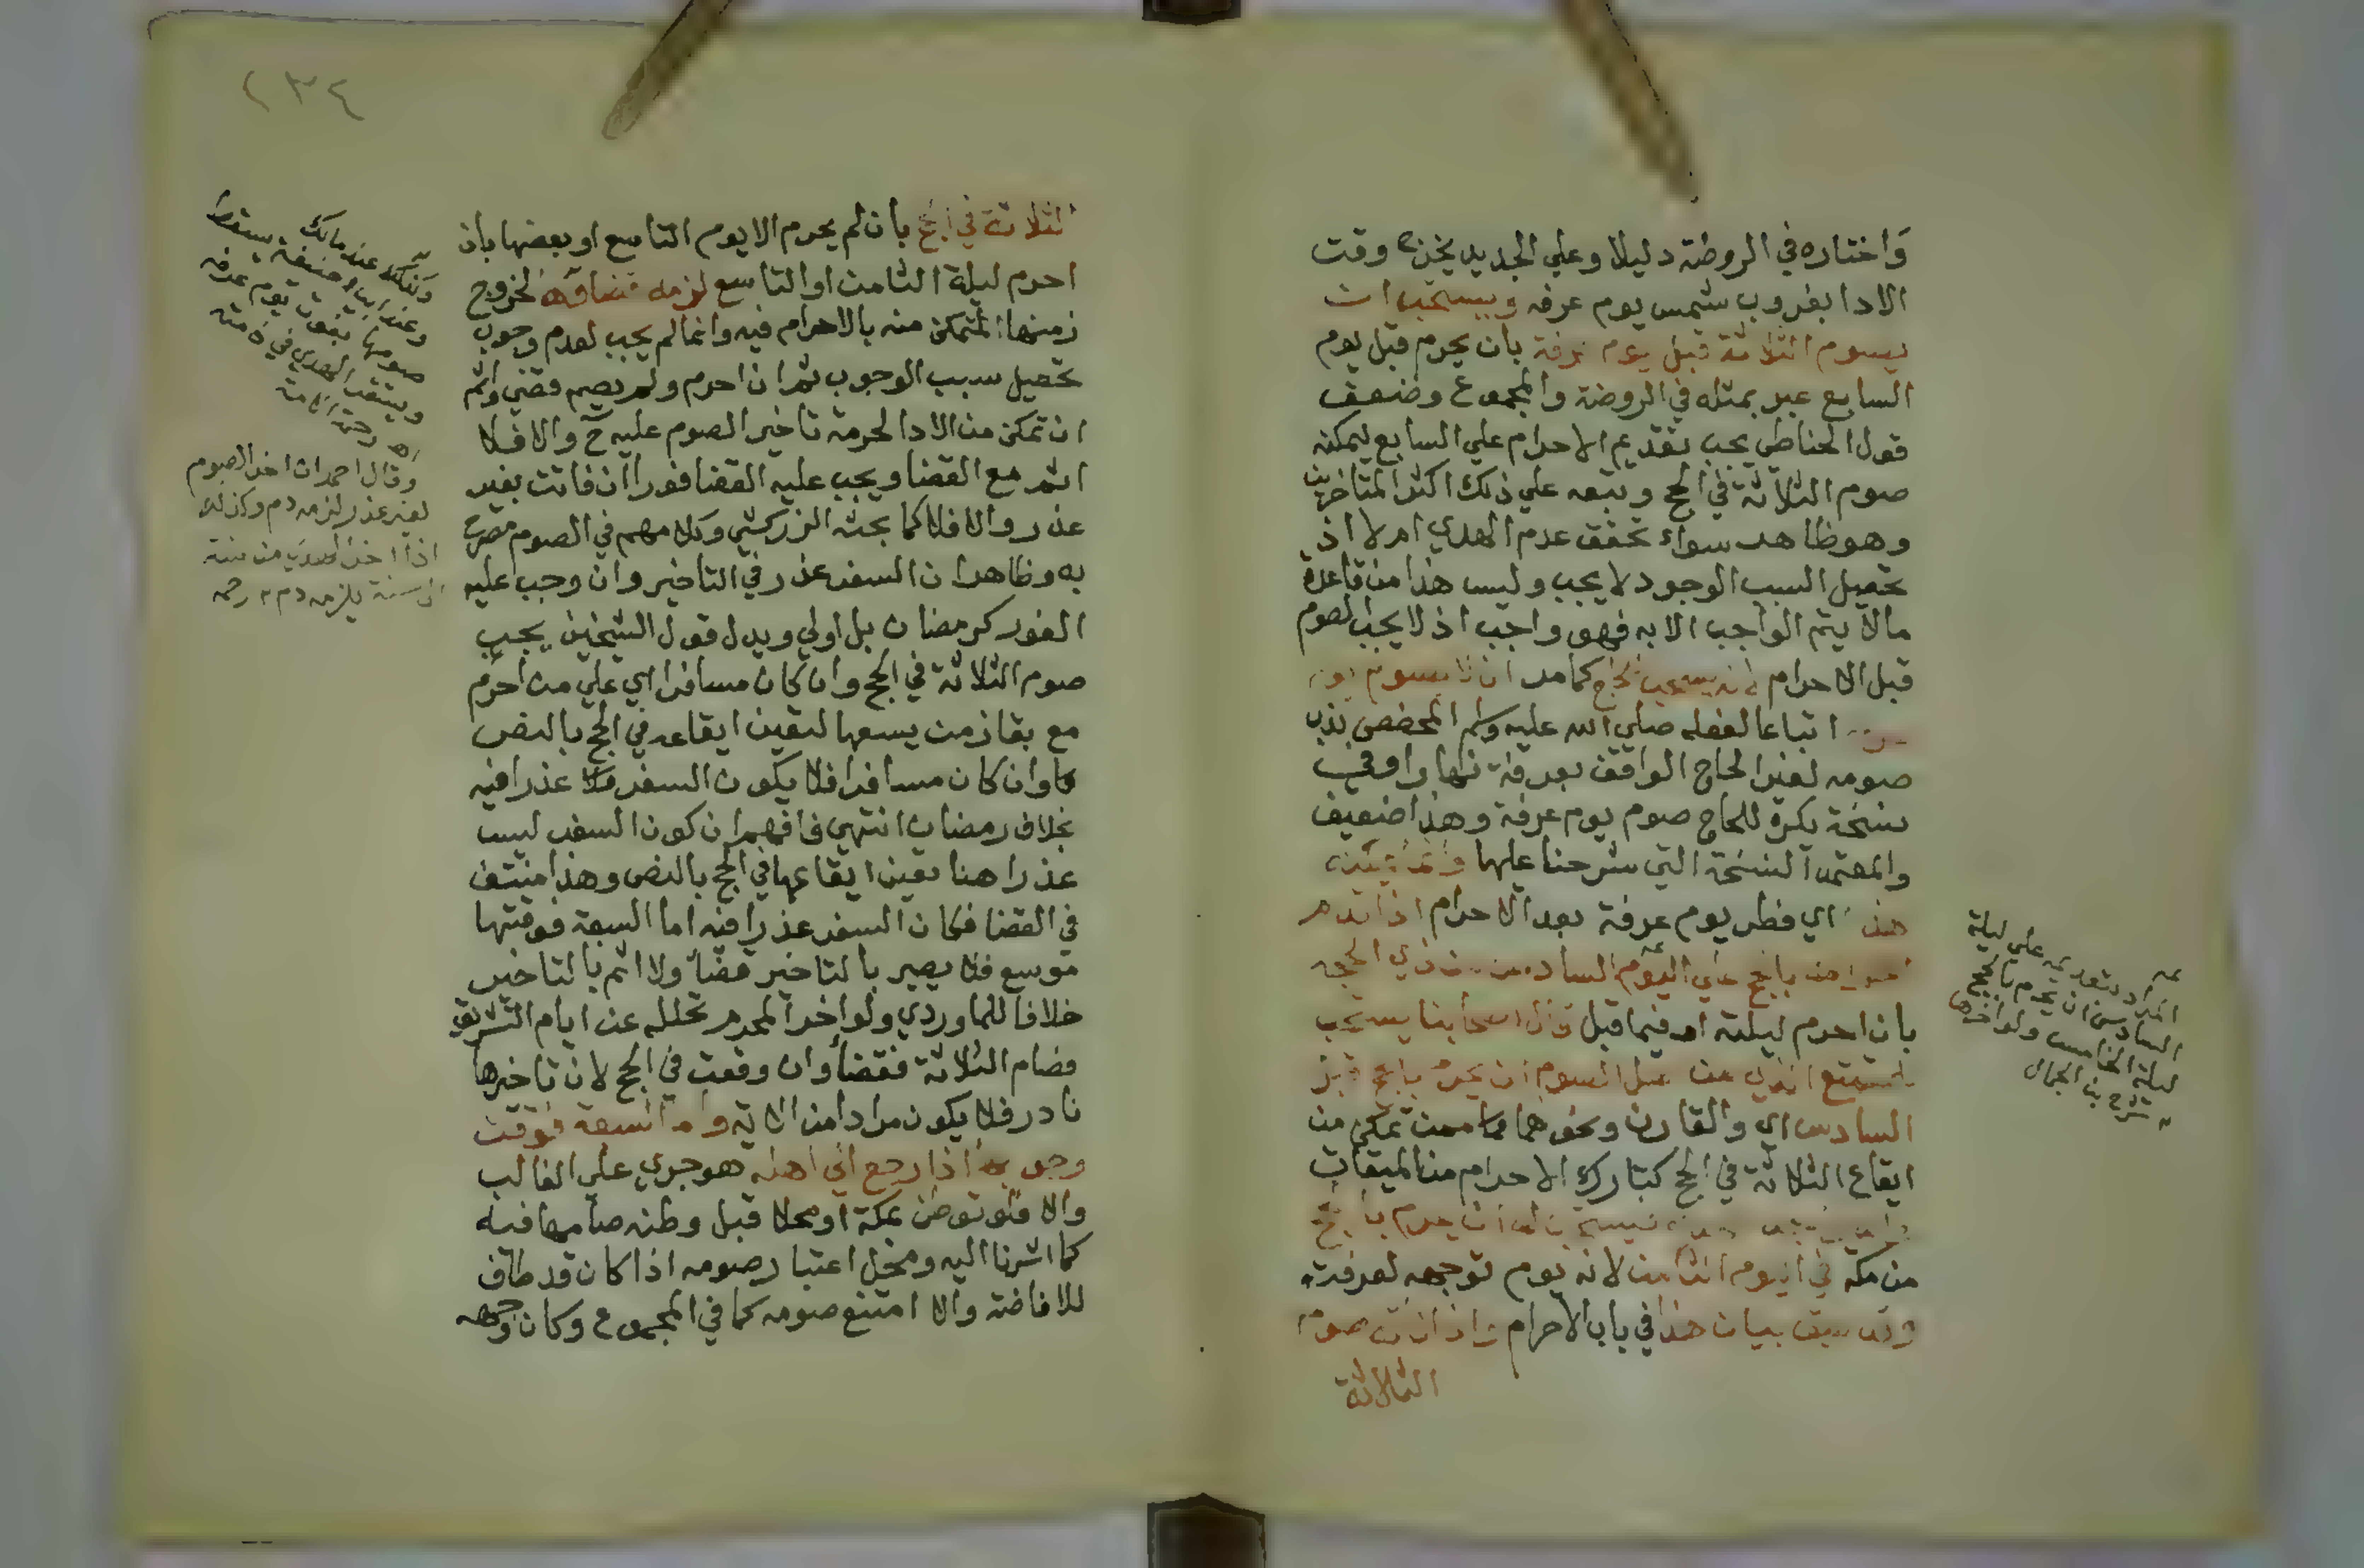 واختاره في الروضة دليلا وعلي الجديد يخرج وقت
الادا بغروب شمس يوم عرفه ويستحب ان
يصوم الثلاثة قبل يوم عرفة بان يحرم قبل يوم
السابع عبر بمثله في الروضة والمجموع وضعف
قول الحناطي يجب تقديم الاحرام علي السابع ليمكنه
صوم الثلاثة في الحج وتبعه علي ذلك اكثر المتاخرين
وهو ظاهر سواء تحقق عدم الهدي ام لا اذ
تحصيل السبب الوجود لا يجب وليس هذا من قاعدة
مالا يتم الواجب الا به فهو واجب اذ لا يجب الصوم
قبل الاحرام لانه يستحب للحاج كما مر ان لا يصوم يوم
اتباعا لفعله صلي الله عليه وسلم المخصص بندب
صومه لغير الحاج الواقف بعرفة نهارا وفي
نسخة يكره للحاج صوم يوم عرفة وهذا ضعيف
والمعتمد النسخة التي شرحنا عليها وانما يمكنه
هذا اي فطر يوم عرفة بعد الاحرام اذا قدم
احرامه بالحج علي اليوم السادس من ذي الحجه
بان احرم ليلته او فيما قبل قال اصحابنا يستحب
للمتمتع الذي من اهل الصوم ان يحرم بالحج قبل
السادس اي والقارن ونحوهما مما ممن تمكن من
ايقاع الثلاثة في الحج كتارك الاحرام من الميقات
فيستحب له ان يحرم بالحج
من مكة في اليوم الثامن لانه يوم توجهه لعرفة
وقد سبق بيان هذا في باب الاحرام واذا فات صوم
الثلاثة
عه
المراد بتقديمه علي ليلة
السادس ان يحرم بالحج
ليلة الخامس ولو اخرها
شرح بن الجمال
٢٣٤
الثلاثة في الحج بان لم يحرم الا يوم التاسع او بعضها بان
احرم ليلة الثامن او التاسع لزمه قضاؤه لخروج
زمنها المتمكن منه بالاحرام فيه وانما لم يجب لعدم وجوب
تحصيل سبب الوجوب ثم ان احرم ولم يصم قضي واثم
ان تمكن من الادا لحرمة تاخير الصوم عليه ح والا فلا
اثم مع القضا ويجب عليه القضا فورا ان فاتت بغير
عذر والا فلا كما بحثه الزركشي وكلامهم في الصوم مصرح
به وظاهر ان السفر عذر في التاخير وان وجب عليه
الفور كرمضان بل اولي ويدل قول الشيخين يجب
صوم الثلاثة في الحج وان كان مسافرا اي علي من احرم
مع بقا زمن يسعها لتعين ايقاعه في الحج بالنص
وان كان مسافرا فلا يكون السفر عذرا فيه
بخلاف رمضان انتهي فافهم ان كون السفر ليس
عذرا هنا تعين ايقاعها في الحج بالنص وهذا منتف
في القضا فكان السفر عذرا فيه اما السبعة فوقتها
موسع فلا يصير بالتاخير قضاً ولا اثم بالتاخير
خلافا للماوردي ولو اخر المحرم تحلله عن ايام التشريق
فصام الثلاثة فقضاً وان وقعت في الحج لان تاخيرها
نادر فلا يكون مرادا من الاية واما السبعة فوقت
وجوبها اذا رجع الي اهله هو جري علي الغالب
والا فلو توطن بمكة او محلا قبل وطنه صامها فيه
كما اشرنا اليه ومحل اعتبار صومه اذا كان قد طاف
للافاضة والا امتنع صومه كما في المجموع وكان وجهه
وكذلك عند مالك
وعند ابي حنيفة يسقط
صومها بفوت يوم عرفه
ويستقر الهدي في ذمته
وقال احمد ان اخر الصوم
لغير عذر لزمه دم وكذلك
اذا اخر الهدي من سنة
الي سنة يلزمه دم